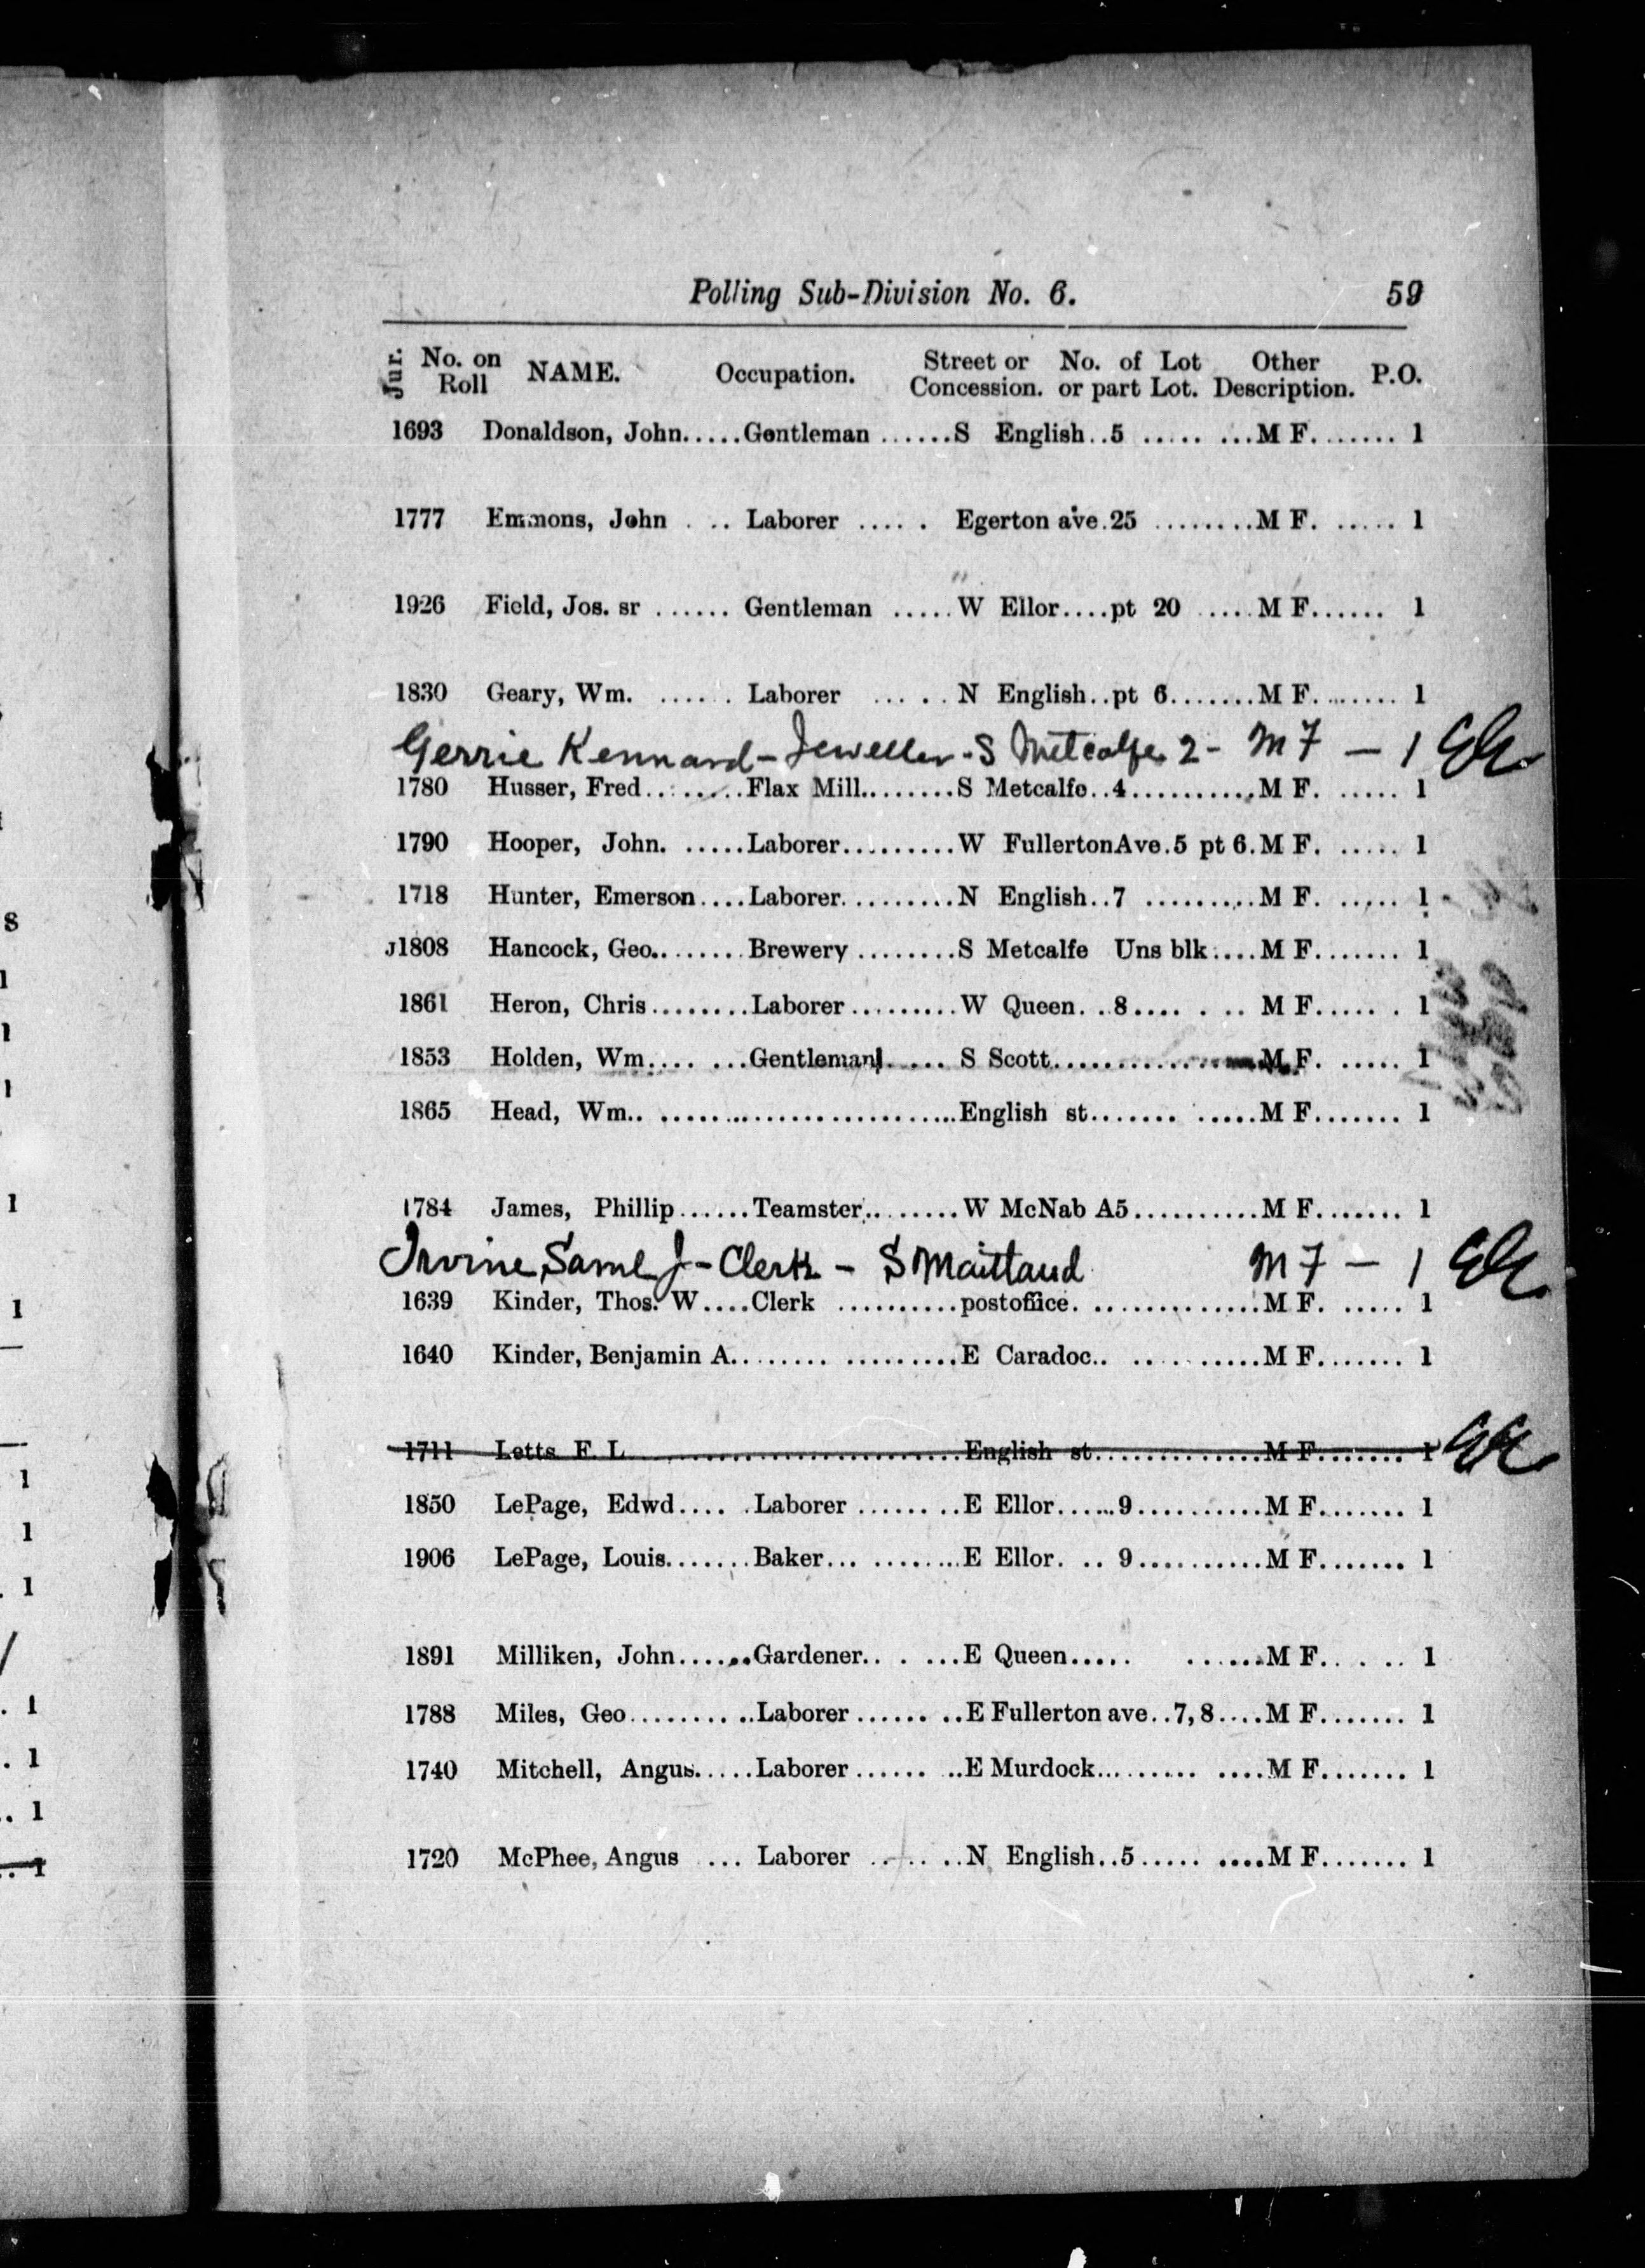 Polling Sub-Division No. 6. 59
Jur. No. on Roll NAME. Occupation. Street or Concession. No. of Lot or part Lot. Other Description. P.O.
1693 Donaldson, John.....Gentleman ......S English..5 ..... ...M F........ 1
1777 Emmons, John . .. Laborer ..... . Egerton ave.25 ........M F. ..... 1
1926 Field, Jos. sr ...... Gentleman .....W Ellor....pt 20 .....M F...... 1
1830 Geary, Wm. ...... Laborer ... . . N English..pt 6.......M F........ 1
Gerrie Kennard - Jeweller - S Metcalfe 2 - M F - 1
1780 Husser, Fred.........Flax Mill........S Metcalfe..4...........M F. ..... 1
1790 Hooper, John. .....Laborer.........W FullertonAve.5 pt 6.M F. ..... 1
1718 Hunter, Emerson....Laborer.........N English..7 .........M F. ..... 1
J1808 Hancock, Geo........Brewery ........S Metcalfe Uns blk....M F....... 1
1861 Heron, Chris........Laborer.........W Queen. ..8.... . .. M F...... . 1
1853 Holden, Wm.... ...Gentleman..... S Scott...............M F. ..... 1
1865 Head, Wm.. .........................English st....... .....M F....... 1
1784 James, Phillip......Teamster.........W McNab A5..........M F....... 1
Irvine Saml J - Clerk - S Maitland M F - 1
1639 Kinder, Thos. W....Clerk ..........postoffice. ..............M F. ..... 1
1640 Kinder, Benjamin A........ .........E Caradoc.. .........M F....... 1
1711 Letts F. L......................English st..............M F....... 1
1850 LePage, Edwd.... .Laborer ....... ..E Ellor......9..........M F....... 1
1906 LePage, Louis.......Baker... ........E Ellor. .. 9..........M F....... 1
1891 Milliken, John.......Gardener.. . ...E Queen..... ......M F.. . .. 1
1788 Miles, Geo......... ..Laborer ...... ..E Fullerton ave..7,8....M F....... 1
1740 Mitchell, Angus.....Laborer...... ..E Murdock......... ....M F....... 1
1720 McPhee, Angus ... Laborer ..... ..N English..5..... ....M F....... 1